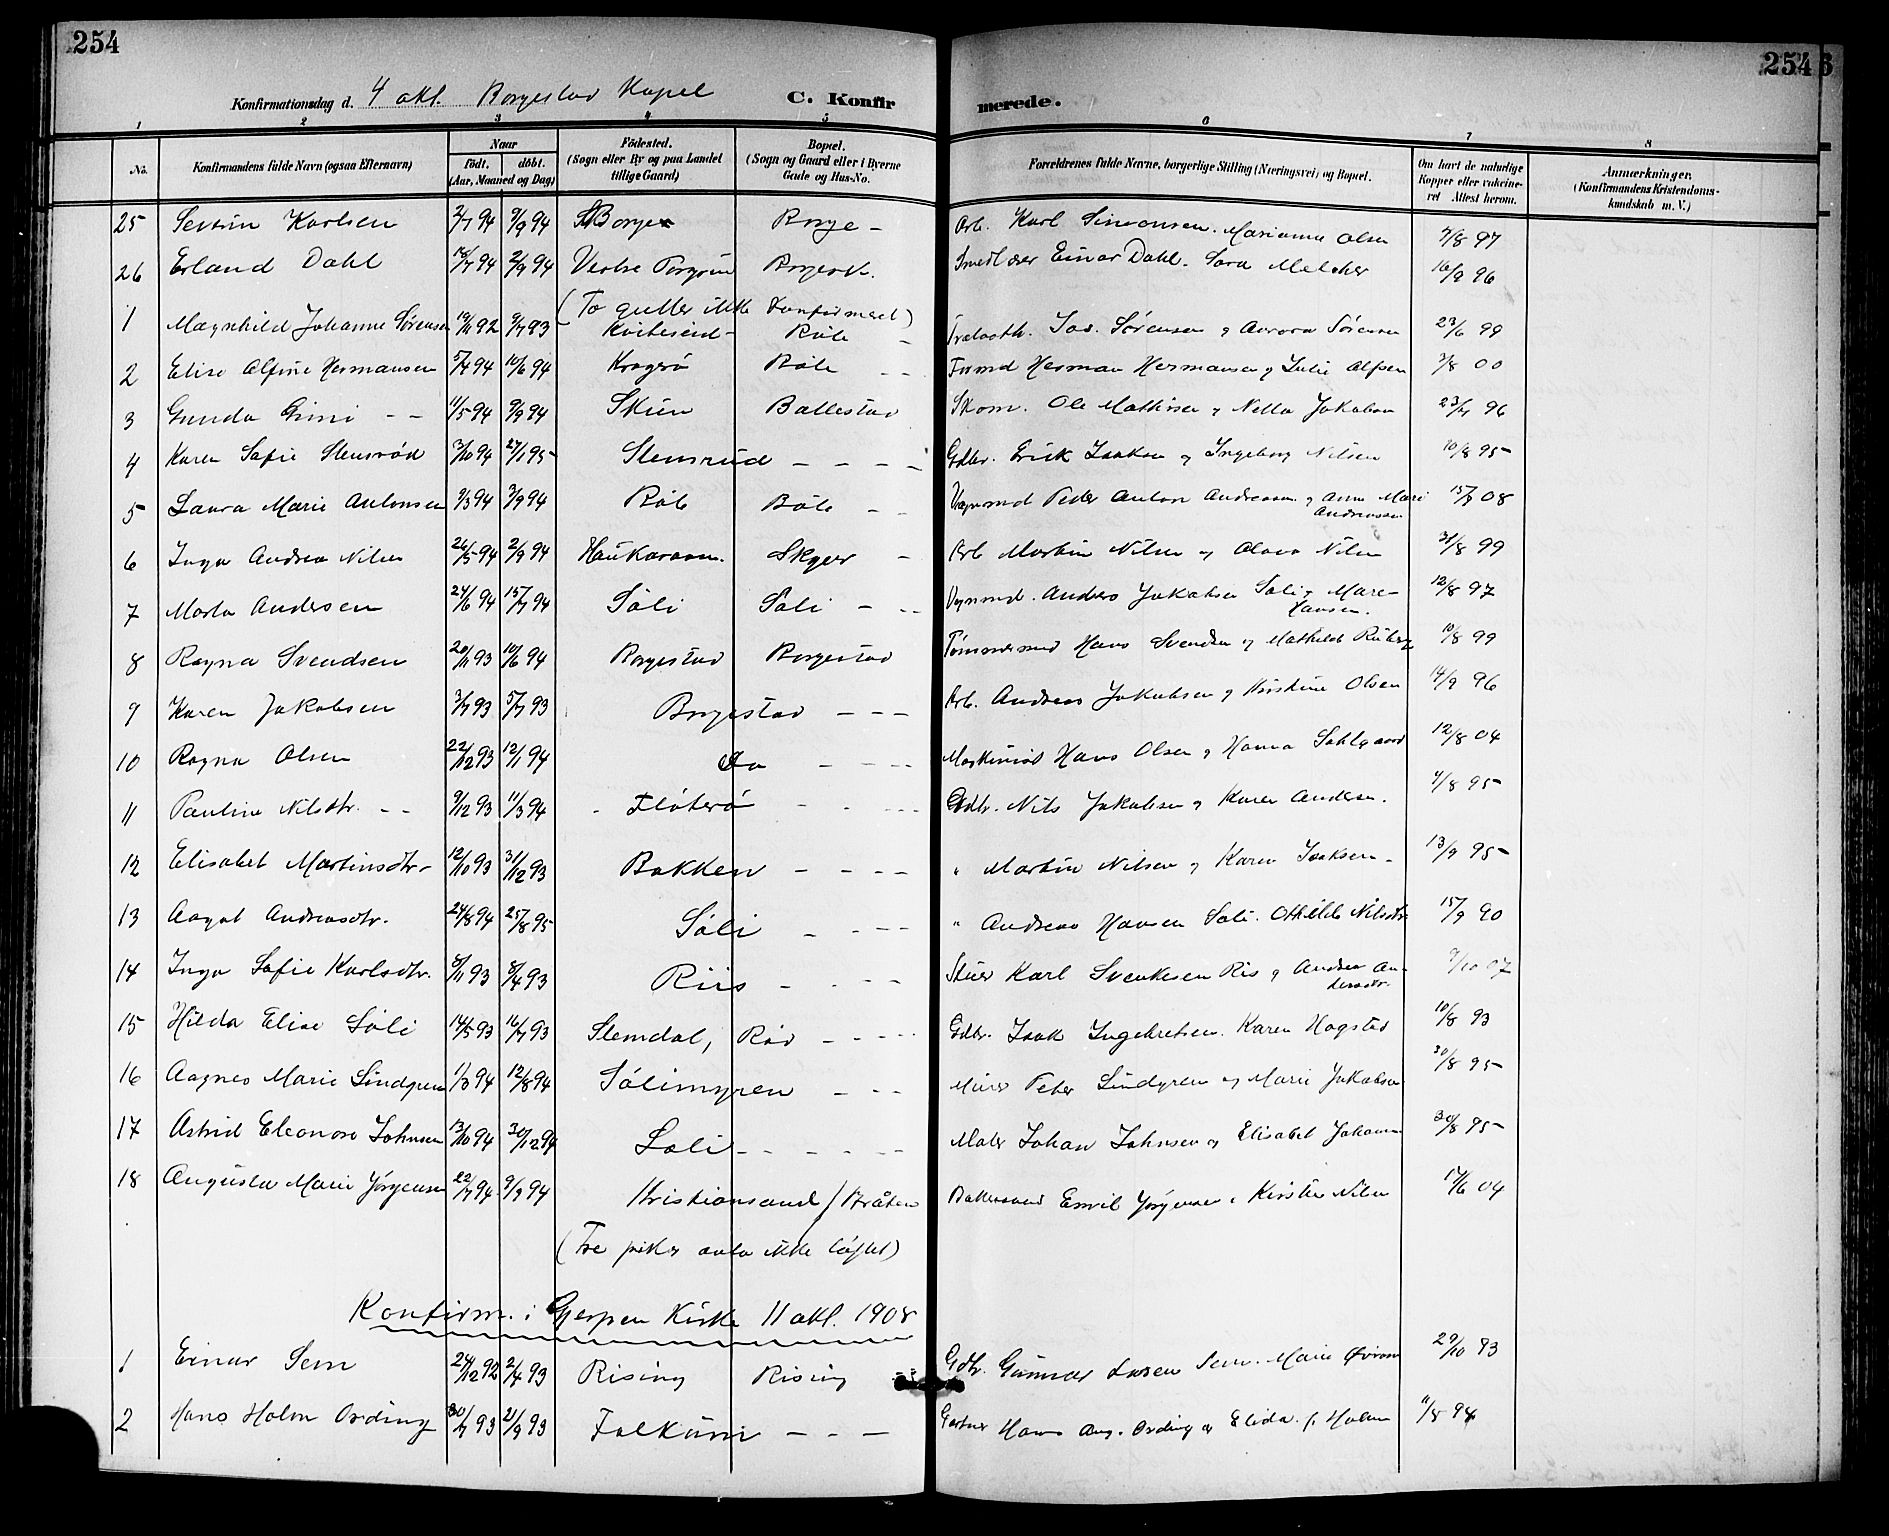 254
254
6
Konfirmationsdag d. 4 okt. Borgestad Kapel C. Konfir merede.
1 2 3 4 5 6 7 8
No. Konfirmandens fulde Navn (ogsaa Efternavn) Naar födt. döbt. (Aar, Maaned og Dag) Födested. (Sogn eller By og paa Landet tillige Gaard) Bopæl. (Sogn og Gaard eller i Byerne Gade og Hus-No. Forældrenes fulde Navne, borgerlige Stilling (Næringsvei) og Bopæl. Om havt de naturlige Kopper eller vakcineret Attest herom. Anmærkninger. (Konfirmandens Kristendomskundskab m. V.)
25 Severin Karlsen 2/7 94 9/9 94 Borge Borge - Arb. Karl Simonsen. Marianne Olsen 7/8 97
26 Erland Dahl 16/7 94 2/9 94 Vestre Porgrun Borgest. Einar Dahl. Sara Melcher 16/9 96
(To gutter ikke konfirmeret)
1 Magnhild Johanne Sørensen 19/11 92 9/7 93 Kviteseid - Bøle - Jac. Sørensen og Aurora Sørensen 23/6 99
2 Elise Alfine Hermansen 5/4 94 10/6 94 Kragerø Bøle - - Formd Herman Hermansen og Julie Alfsen 3/8 00
3 Gunda Gimi - - 11/5 94 9/9 94 Skien Ballestad Skom. Ole Mathisen og Nella Jakobsen 23/7 96
4 Karen Sofie Stensrød 3/10 94 27/1 95 Stensrud - - - - Gdbr. Erick Isaksen og Ingeborg Nilsen 10/8 95
5 Laura Marie Antonsen 9/3 94 3/9 94 Bøle Bøle - - Vognmd Peder Anton Andreasen og Anne Marie Andreassen 15/9 08
6 Inga Andrea Nilsen 26/5 94 2/9 94 Haukaraam. Skyer - Arb Martin Nilsen og Olava Nilsen 31/8 99
7 Marta Andersen 24/6 94 15/7 94 Søli Søli - - Vognmd. Anders Jakobsen Søli og Maren Hansen. 12/8 97
8 Ragna Svendsen 20/11 93 10/6 94 Borgestad Borgestad Tømmermd Hans Svendsen og Mathilde 10/8 99
9 Karen Jakobsen 3/7 93 5/7 93 Borgestad - - - Arb. Andreas Jakobsen og Kirstine Olsen 14/9 96
10 Ragna Olsen 22/12 93 12/1 94 Do - - - Maskinist Hans Olsen og Hanna Dahlgaard 12/8 04
11 Pauline Nilsdtr. - - 9/12 93 11/3 94 - Fløterø - - - - Gdbr. Nils Jakobsen og Karen Andersen. 4/8 95
12 Elisabet Martinsdtr - 12/10 93 31/12 93 Bakken - - - - " Martin Nilsen og Karen Isaksen - 13/9 95
13 Aagot Andreasdtr. 24/8 94 25/8 95 Søli - - - - " Andreas Hansen Søli. Othilde Nilsdtr 15/9 90
14 Inga Sofie Karlsdtr. 8/11 93 8/4 93 Riis - - - - Karl Svenkesen Ris og Andrea Andersdtr. 9/10 07
15 Hilda Elise Søli 14/5 93 16/7 93 Slemdal, Rød - - - - Gdbr. Isak Ingebretsen. Karen Hogstad 10/8 93
16 Aagnes Marie Lindgren 1/8 94 12/8 94 Sølimyren - - - Murer Peter Lindgren og Marie Jakobsen 30/8 95
17 Astrid Eleonore Johnsen 13/10 94 30/12 94 Søli - - - - - Maler Johan Johnsen og Elisabet Johansen 30/8 95
18 Augusta Marie Jørgensen 22/7 94 9/9 94 Kristiansand / Bråten Emil Jørgensen og Kirstine Nilsen 17/6 04
(Tre piker avla ikke løftet)
Konfirm. i Gjerpen Kirke 11 okt. 1908
1 Einar Sem 24/12 92 2/4 93 Rising Rising Gdbr. Gunnar Larsen Sem. Marie 29/10 93
2 Hans Holm Ording 30/7 93 21/9 93 Falkum - - - Gartner Hans Aug. Ording og Elida f. Holm 11/8 94